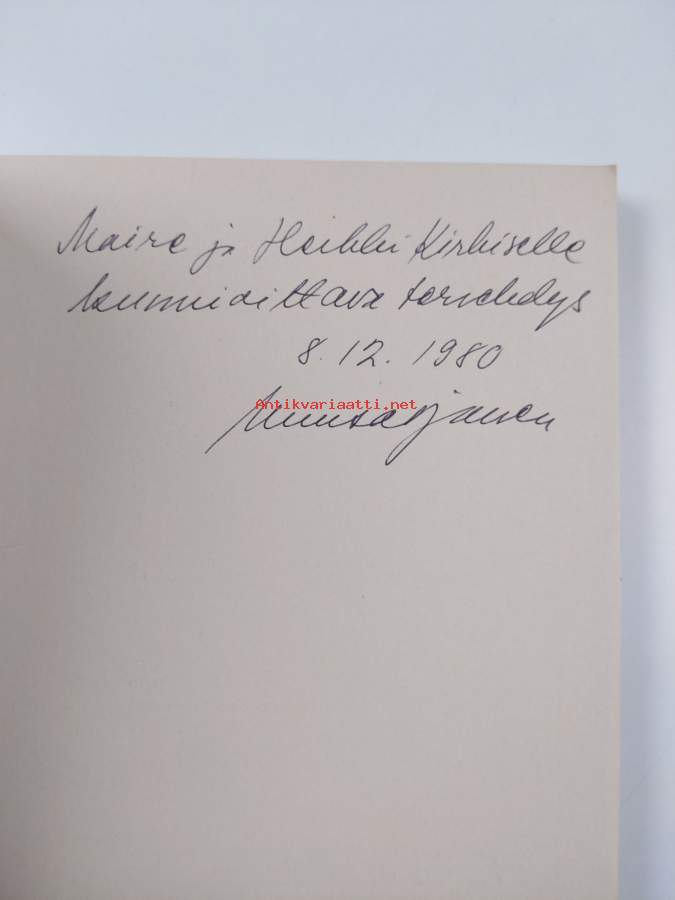 Maire ja Heikki Kirkiselle
kunnioittava tervehdys
8.12.1980
Antikvariaatti.net